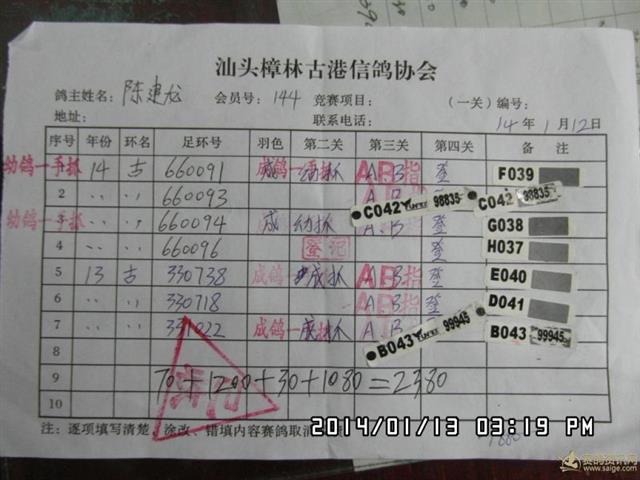 汕头樟林古港信鸽协会
鸽主姓名: 陈建龙 会员号: 144 竞赛项目: (一关) 编号:
地址: 联系电话: 14年1月12日
序号 年份 环名 足环号 羽色 第二关 第三关 第四关 备注
幼鸽一手抓 14 古 660091 A.B 登 F039
2 〃 〃 660093 A.B C042 98835 C042 98835
幼鸽一手抓 〃 〃 660094 成 幼抓 A.B 登 G038
4 〃 〃 660096 登记 登 H037
5 13 古 330738 成鸽一 成抓 A.B 指 登 E040
6 〃 〃 330718 A.B 指 登 D041
7 〃 〃 331022 成鸽一 A.B B043 99945 B043 99945
8
9 70+1200+30+1080=2380
10
注: 逐项填写清楚, 涂改、错填内容赛鸽取消
2014/01/13 03:19 PM
赛鸽资讯网
www.saige.com